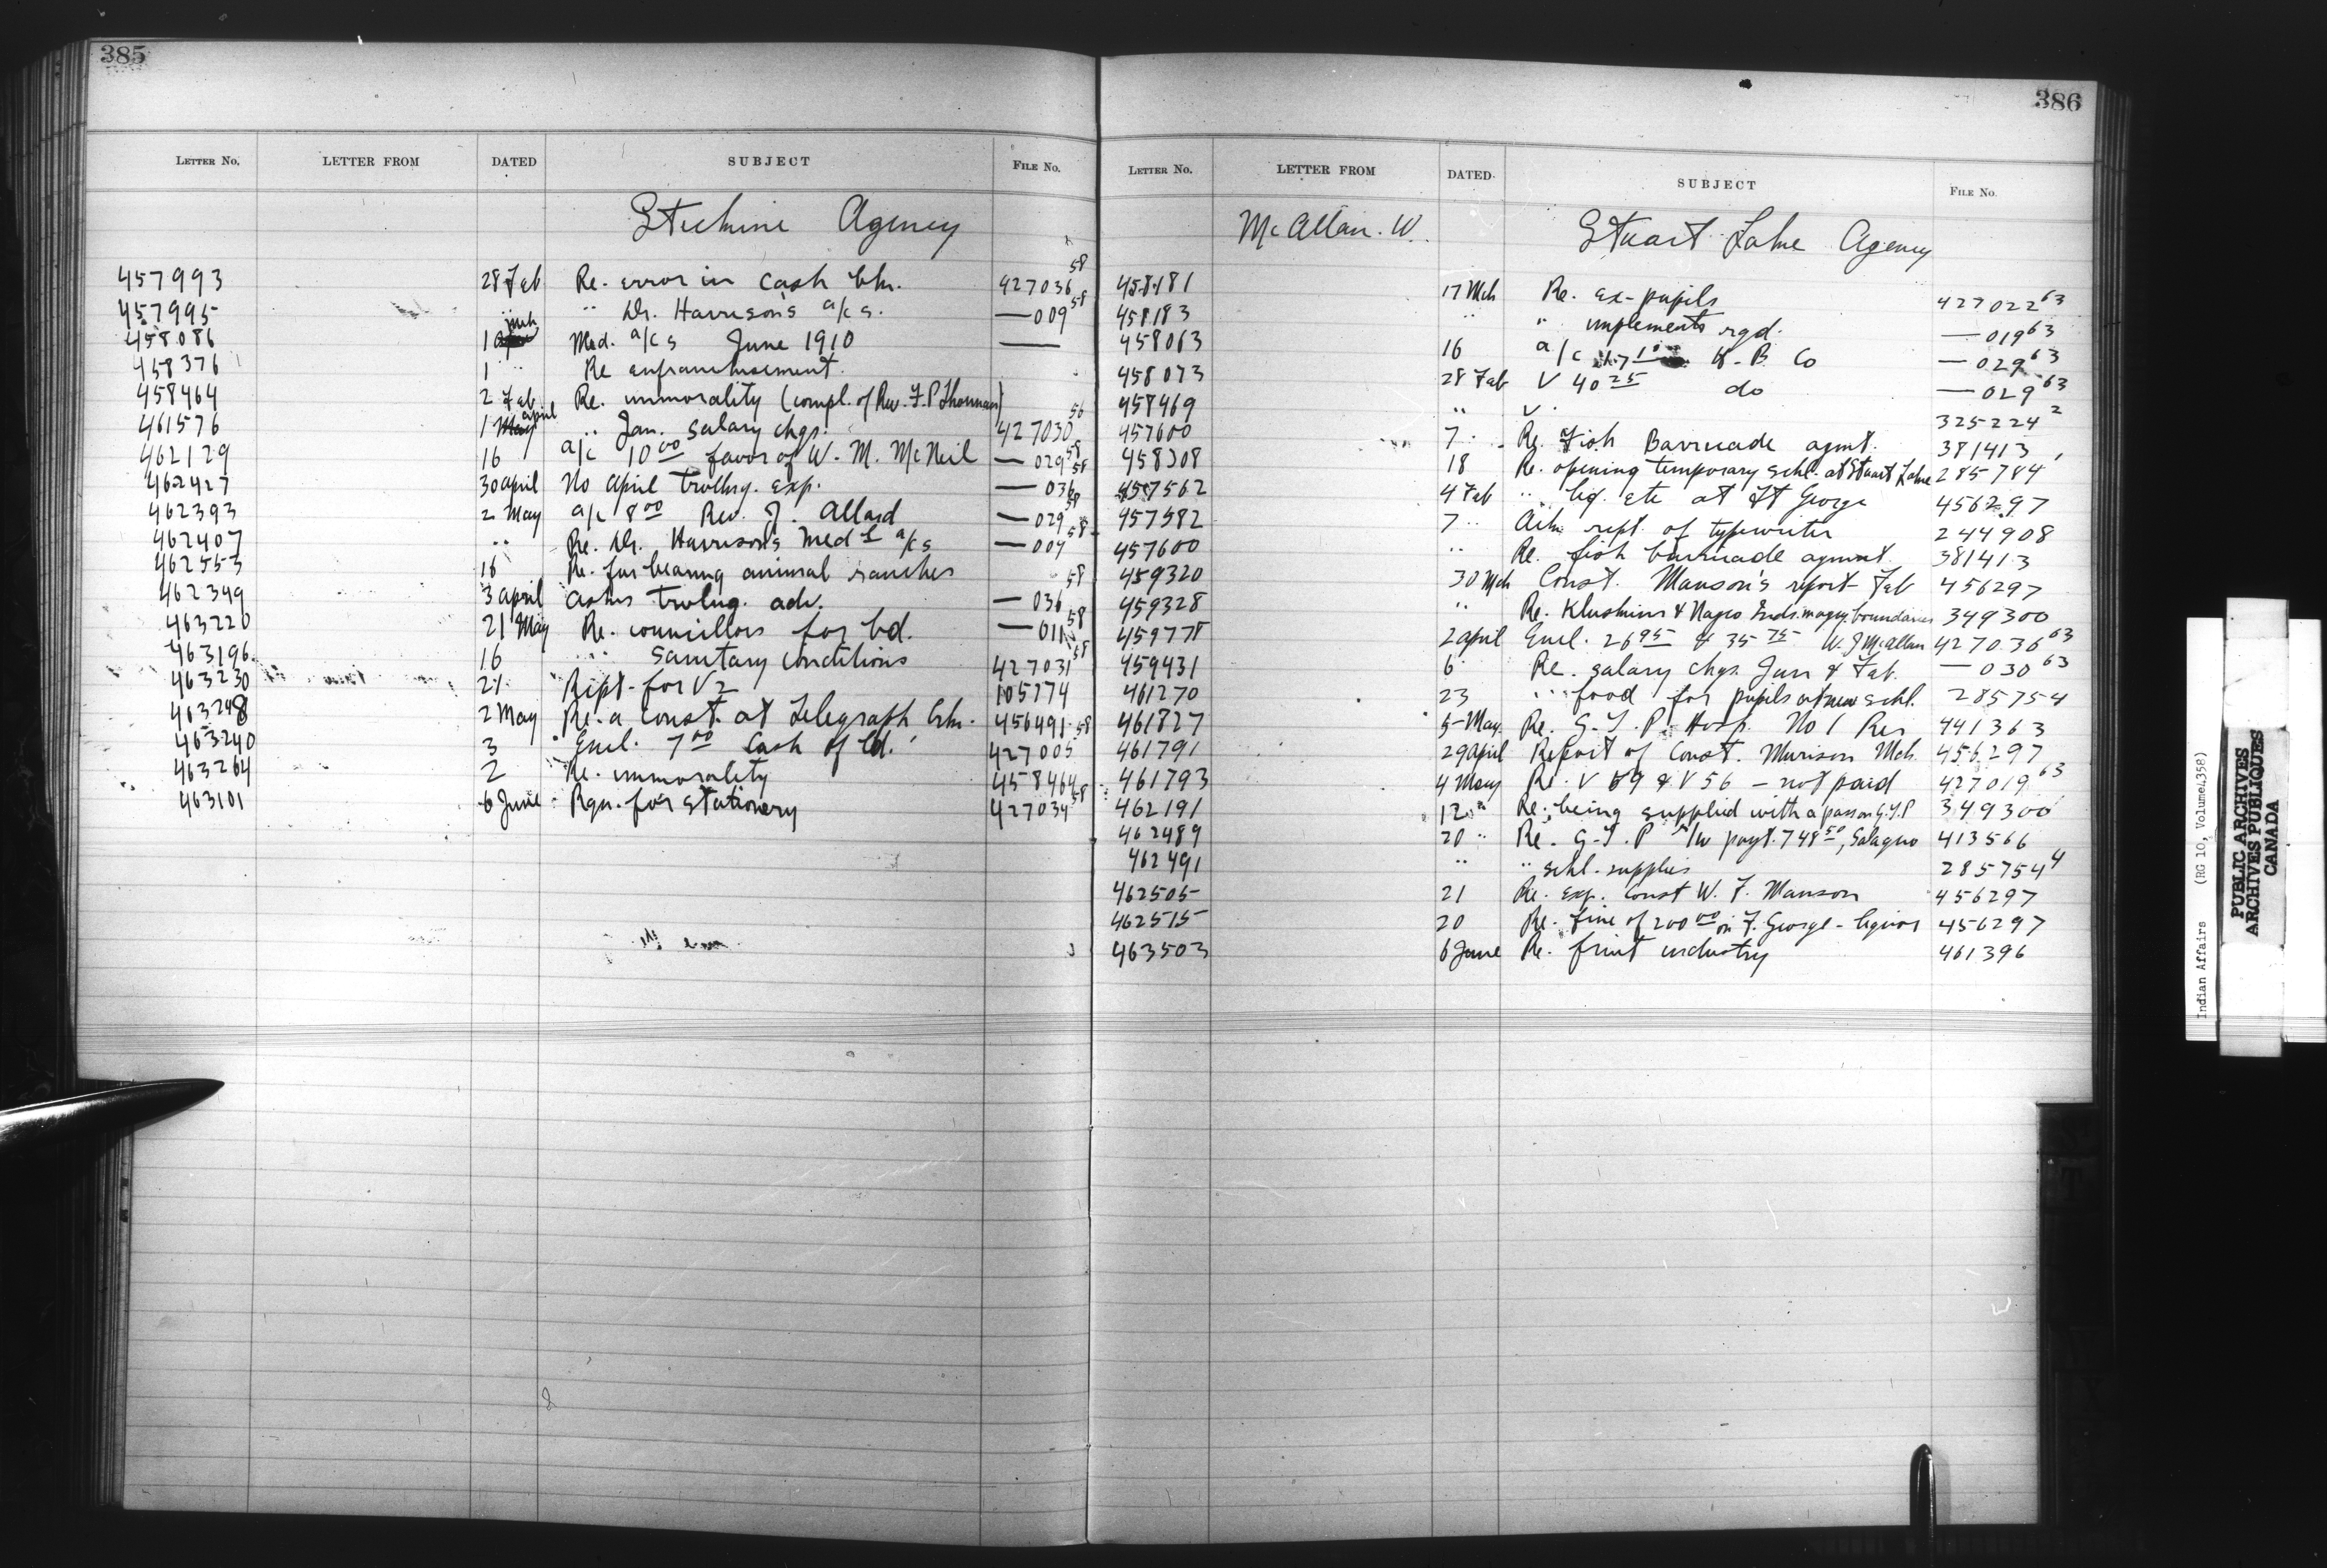 385
LETTER NO. LETTER FROM DATED SUBJECT FILE NO.
Stickine Agency
457993 28 Feb Re. error in Cash bln. 427036 58
457995 " " Dr. Harrison's a/cs. — 009 58
458086 1 Mch Med. a/cs June 1910 —
458376 1 " Re enfranchisement.
458464 2 Feb Re. immorality (compl. of Rev. F. P. Thorman)
461576 1 april " Jan. salary chgs. 427030 56
462129 16 a/c 10 00 favor of W. M. McNeil — 029 58
462427 30 april No april trvllng. exp. — 036 58
462393 2 May a/c 8 00 Rev. J. Allard — 029 58
462407 " Re. Dr. Harrison's Med l a/cs — 009 58
462553 16 Re. fur bearing animal ranches
462349 3 april asks trvlng. adv. — 036 58
463220 21 May Re. councillors for bd. — 011 58
463196 16 " sanitary conditions 427031 58
463230 21 Ript. for V2 105774
463248 2 May Re. a const. at Telegraph Crk. 456491
463240 3 Encl. 7 00 Cash of Ed. 427005 58
463264 2 Re. immorality 458464
463101 6 June Rqn. for stationery 427034 58
386
LETTER NO. LETTER FROM DATED. SUBJECT FILE NO.
McAllan. W. Stuart Lake Agency
458181 17 Mch Re. ex-pupils 427022 63
458183 " " implements rqd. — 019 63
458063 16 a/c H. B. Co — 029 63
458073 28 Feb V 40 25 do — 029 63
458469 " V. 325224 2
457600 7 Re. Fish Barricade agmt. 381413
458308 18 Re. opening temporary schl. at Stuart Lake 285784
457562 4 Feb " liq. etc at Ft George 456297
457582 7 " Ackn ript. of typewriter 244908
457600 " Re. fish barricade agmnt. 381413
459320 30 Mch Const. Manson's report Feb 456297
459328 " Re. Kluskins & Nazco Inds. boundaries 349300
459778 2 april Encl. 26 95 & 35 75 W. J McAllan 427036 63
459431 6 Re. salary chgs. Jan & Feb. — 030 63
461270 23 " food for pupils at new schl. 285754
461827 5 May Re. G. T. P. Hosp. No 1 Res 441363
461791 29 april Report of Const. Manson Mch 456297
461793 4 May Re. V 69 & V 56 – not paid 427019 63
462191 12 " Re. being supplied with a pass on G.T.P 349300
462489 20 " Re. G. T. P r/w payt. 748 50, 413566
462491 " " schl. supplies 285754 4
462505 21 Re. exp. Const W. F. Manson 456297
462515 20 Re. fine of 200 00 on F. George – liquor 456297
463503 6 June Re. fruit industry 461396
Indian Affairs (RG 10, Volume 4358)
PUBLIC ARCHIVES
ARCHIVES PUBLIQUES
CANADA